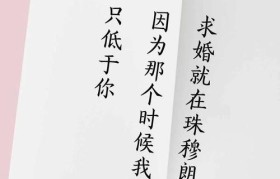 求婚就在珠穆朗
因为那个时候我
只低于你